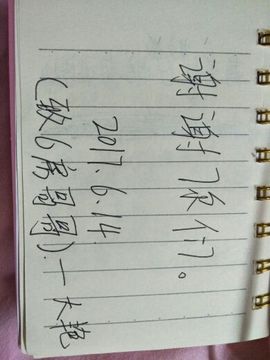 谢谢你们。
2017.6.14
(致6房哥哥).一大